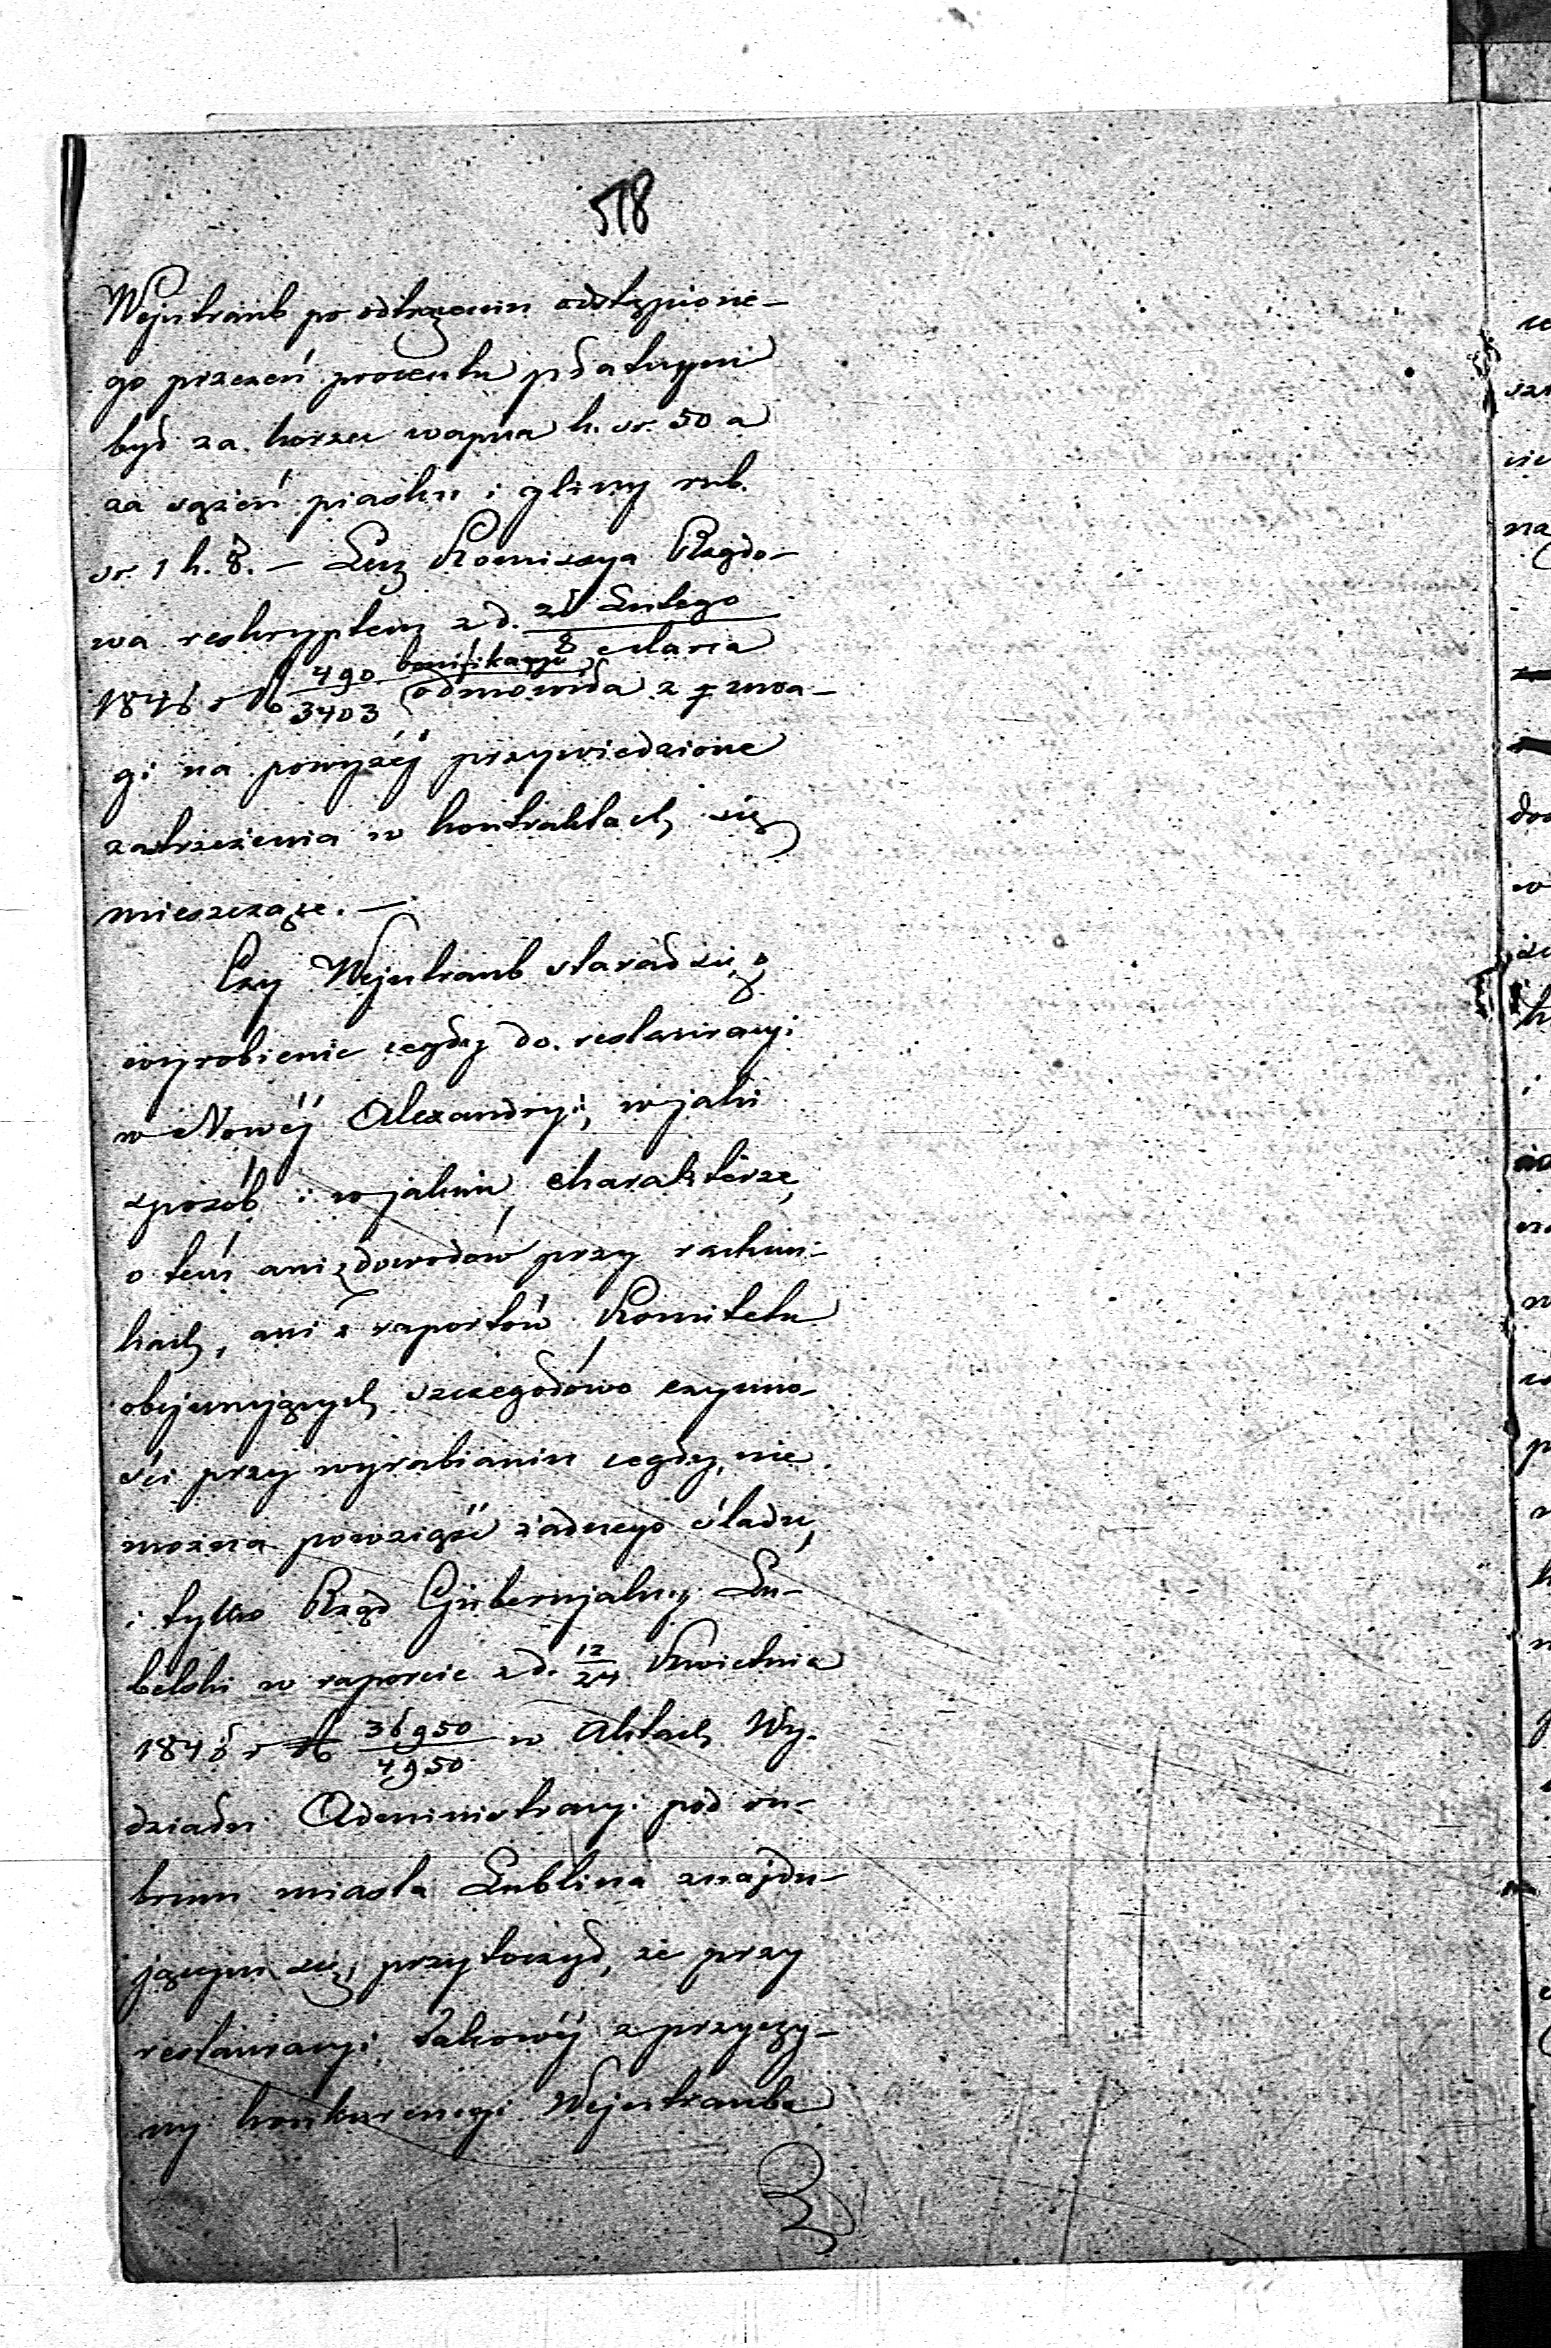 518
Wejntraub po odtrąceniu odstąpione-
go przezeń procentu płatnymi
był za korzec wapna k. sr. 50 a
za sążeń piasku i gliny rub.
sr. 1 k. 8. — Lecz Kommissya Rządo-
wa reskryptem z d. 24 Lutego / 8 Marca
1846 r № 490/3403 bonifikacyi odmówiła z uwa-
gi na powyżéj przywiedzione
zastrzeżenia w kontraktach się
mieszczące. —
Czy Wejntraub starał się o
wyrobienie cegły do restauracyi
w Nowéj Alexandryi, w jaki
sposób i w jakim charakterze,
o tem ani z dowodów przy rachun-
kach, ani z raportów Komitetu
obejmujących szczegółowo czynno-
ści przy wyrabianiu cegły, nie
można powziąść żadnego śladu,
i tylko Rząd Gubernjalny Lu-
belski w raporcie z d. 12/24 Kwietnia
1846 r № 36950/4950 w Aktach Wy-
działu Administracyi pod ru-
brum miasta Lublina znajdu-
jącym się, przytoczył, że przy
restauracyi takowéj z przyczy-
ny konkurencyi Wejntrauba